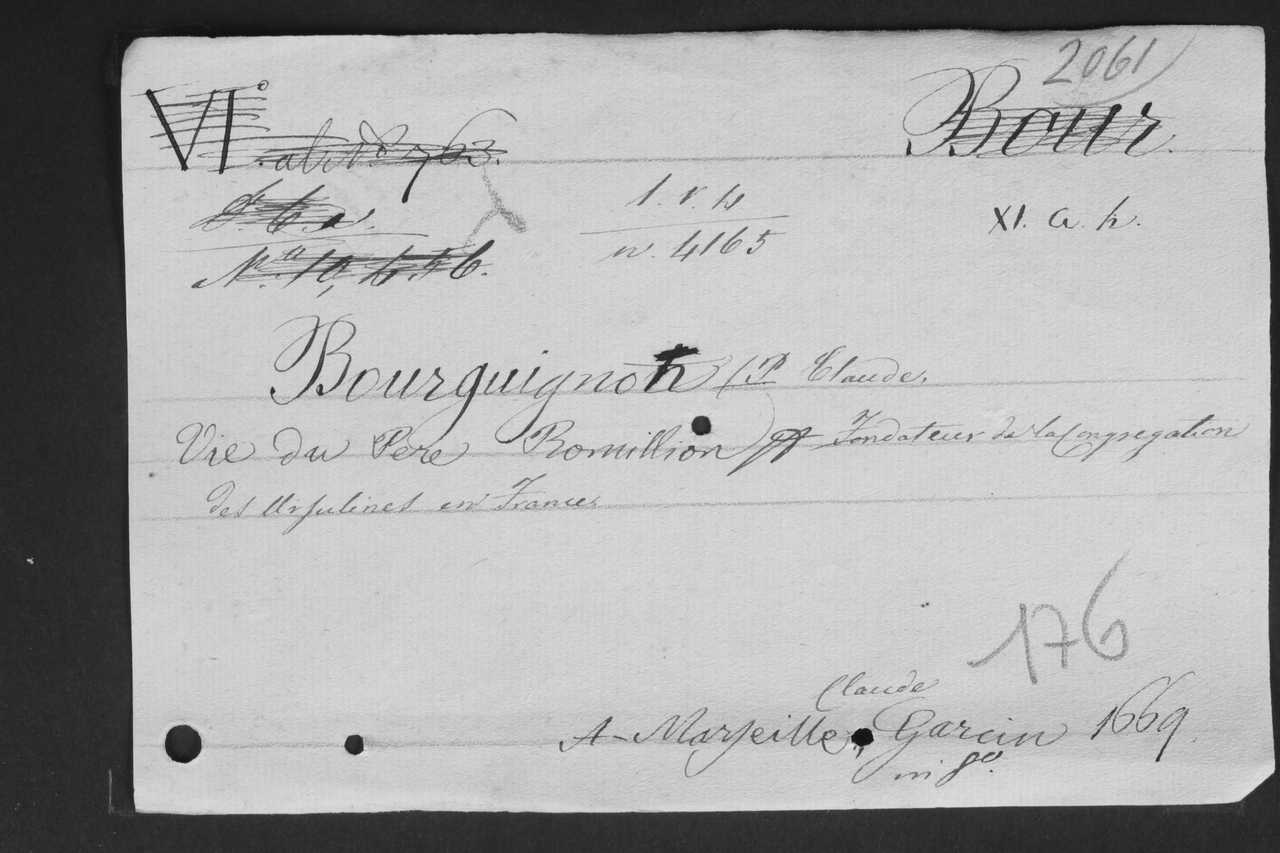 2061
VI°
Bour.
1. v. 4
n. 4165
XI. a. h.
Bourguignon (P. Claude.
Vie du Pere Romillion Fondateur de la Congregation
des Ursulines en France
176
Claude
A Marseille, Garcin 1669.
in 8º.